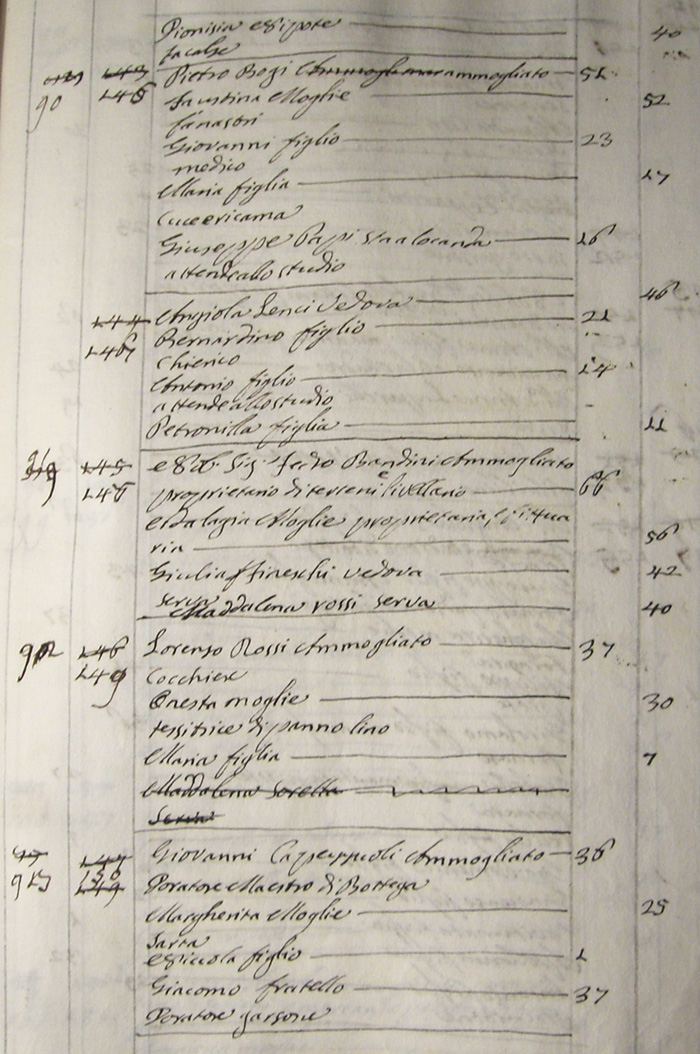 Dionisia Nipote 40
fa calze
90 145 Pietro Bogi Ammogliato 51
Faustina Moglie 52
fa nastri
Giovanni figlio 23
medico
Maria figlia 17
Cuce e ricama
Giuseppe Papi sta a locanda 16
attende allo studio
144 Angiola Lenci Vedova 46
146 Bernardino figlio 21
Chierico
Antonio figlio 14
attende allo studio
Petronilla figlia 11
145 Sig. Pedro Bandini Ammogliato
proprietario di terreni e livellario 66
Adalagia Moglie proprietaria
ria 56
Giulia Vedova 42
serva
Maddalena rossi serva 40
92 146 Lorenzo Rossi Ammogliato 37
149 Cocchiere
Onesta moglie 30
tessitrice di panno lino
Maria figlia 7
Maddalena Sorella
Serva
147 Giovanni Ammogliato 36
93 150 Doratore Maestro di Bottega
Margherita Moglie 25
Sarta
Niccola figlio 1
Giacomo fratello 37
Doratore garzone